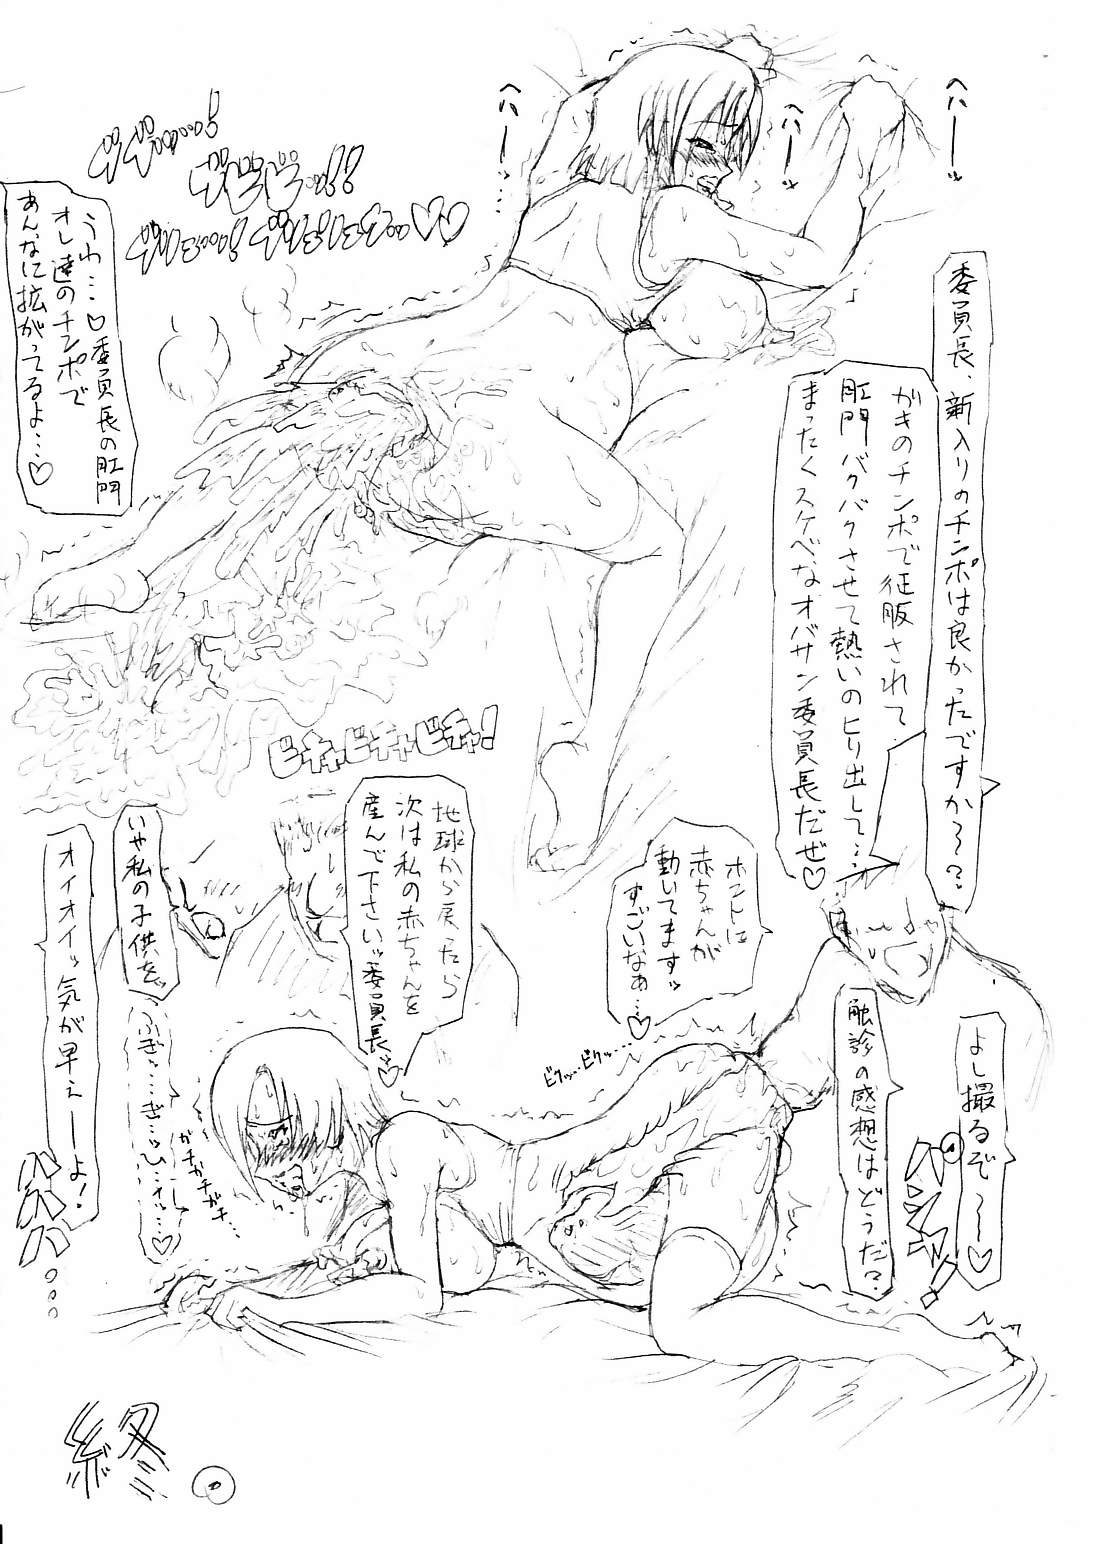 ヘハーーッ
ヘハーッ
ヘハーーッ…
委員長、新入りのチンポは良かったですか～？
がきのチンポで征服されて
肛門バクバクさせて熱いのヒリ出して…
まったくスケベなオバサン委員長だぜ♡
うわ…♡委員長の肛門
オレ達のチンポで
あんなに拡がってるよ…♡
ビチャビチャビチャ!
ホントに
赤ちゃんが
動いてますッ
すごいなぁ…♡
地球から戻ったら
次は私の赤ちゃんを
産んで下さいッ委員長♡
いや私の子供をッ
オイオイッ気が早えーーよ！
ハハハ。。。
よし撮るぞ～～♡
触診の感想はどうだ？
ビクッ…ビクッ……
ふぎ……ぎ…ッひ…
ガチガチガチ…
終